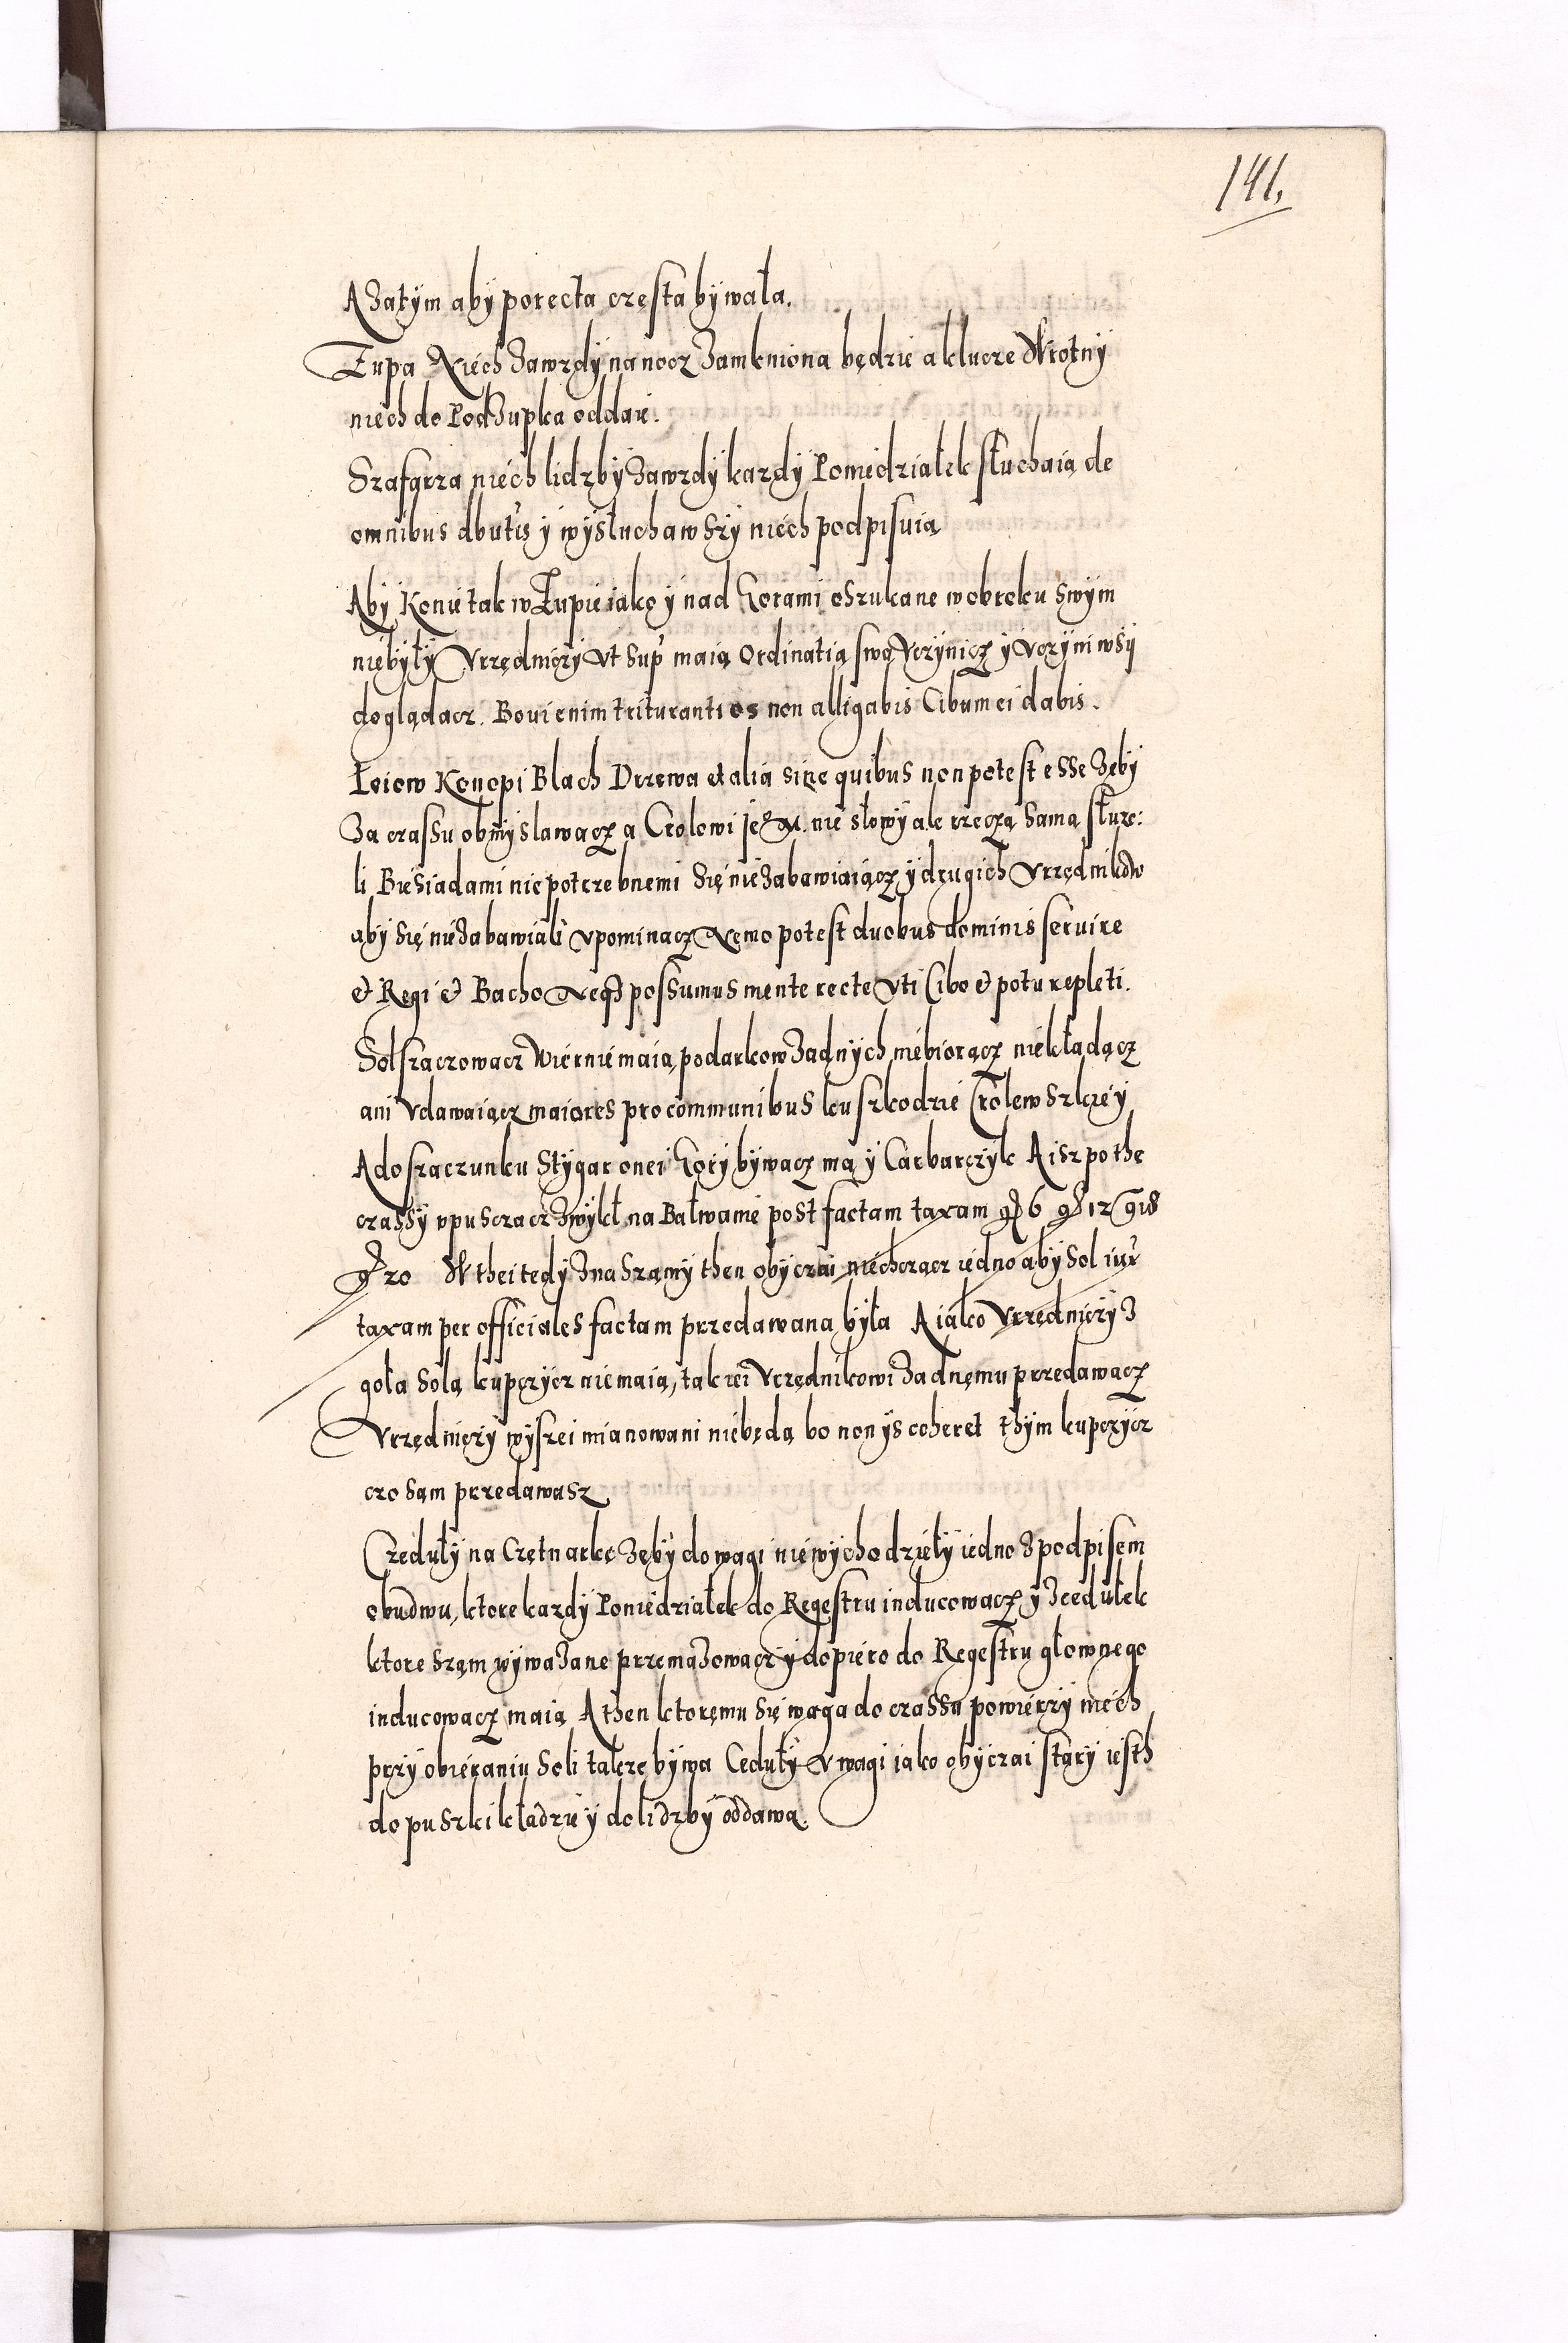 141.
A zatym aby porecta częsta bywała.
Żupa Niech zawżdy na nocz zamkniona będzie a klucze Wrotny
niech do Podżupka oddaie.
Szafarza niech lidzby zawżdy każdy Poniedziałek słuchaią de
omnibus dbutis y wysłuchawszy niech podpisuią
Aby Konie tak w Żupie iako y nad Gorami oszukane w obroku swym
niebyły Vrzędniczy Vt sup maią Ordinatią swą Vczynicz y Vczyniwsy
doglądacz. Boui enim trituranti os non alligabis Cibum ei dabis.
Łoiow Konopi Blach Drzewa et alia sine quibus non potest esse żeby
za czassu obmyslawacz a Crolowi Je° M. nie słowy ale rzeczą samą służe:
li Biesiadami niepotrzebnemi się nie zabawiaiącz y drugich Vrzędnikow
aby się nie zabawiali vpominacz Nemo potest duobus dominis seruire
et Regi et Bacho Neq3 possumus mente recte Vti Cibo et potu repleti.
Sol szaczowacz Wiernie maią, podarkow żadnych niebiorącz niekładącz
ani Vdawaiącz maiores pro communibus ku szkodzie Crolewszkiey
A do szaczunku Stygar onei Gory bywacz ma y Carbarczyk A isz po the
czassy vpusczacz zwykł na Bałwanie post factam taxam gr 6 gr 12 gr 18
gr 20 W thei tedy zna szamy then obyczai niechczacz iedno aby Sol iux
taxam per officiales factam przedawana była A iako Vrzędniczy z
goła Solą kupczycz nie maią, tak ieі Vrzędnikowi żadnemu przedawacz
Vrzędniczy wyszei mianowani niebędą bo non ys coheret thym kupczycz
czo sam przedawasz
Czeduły na Czetnarke żeby do wagi niewychodzieły iedno z podpisem
obudwu, ktore kazdy Poniedziałek do Regestru inducowacz y z cedułek
ktore szam wyważane przemazowacz y dopiero do Regestru głownego
inducowacz maią A then ktoremu się waga do czassu powierzy niech
przy obieraniu Soli takze bywa Ceduły v wagi iako obyczai stary iesth
do puszki kładzie y do lidzby oddawa.